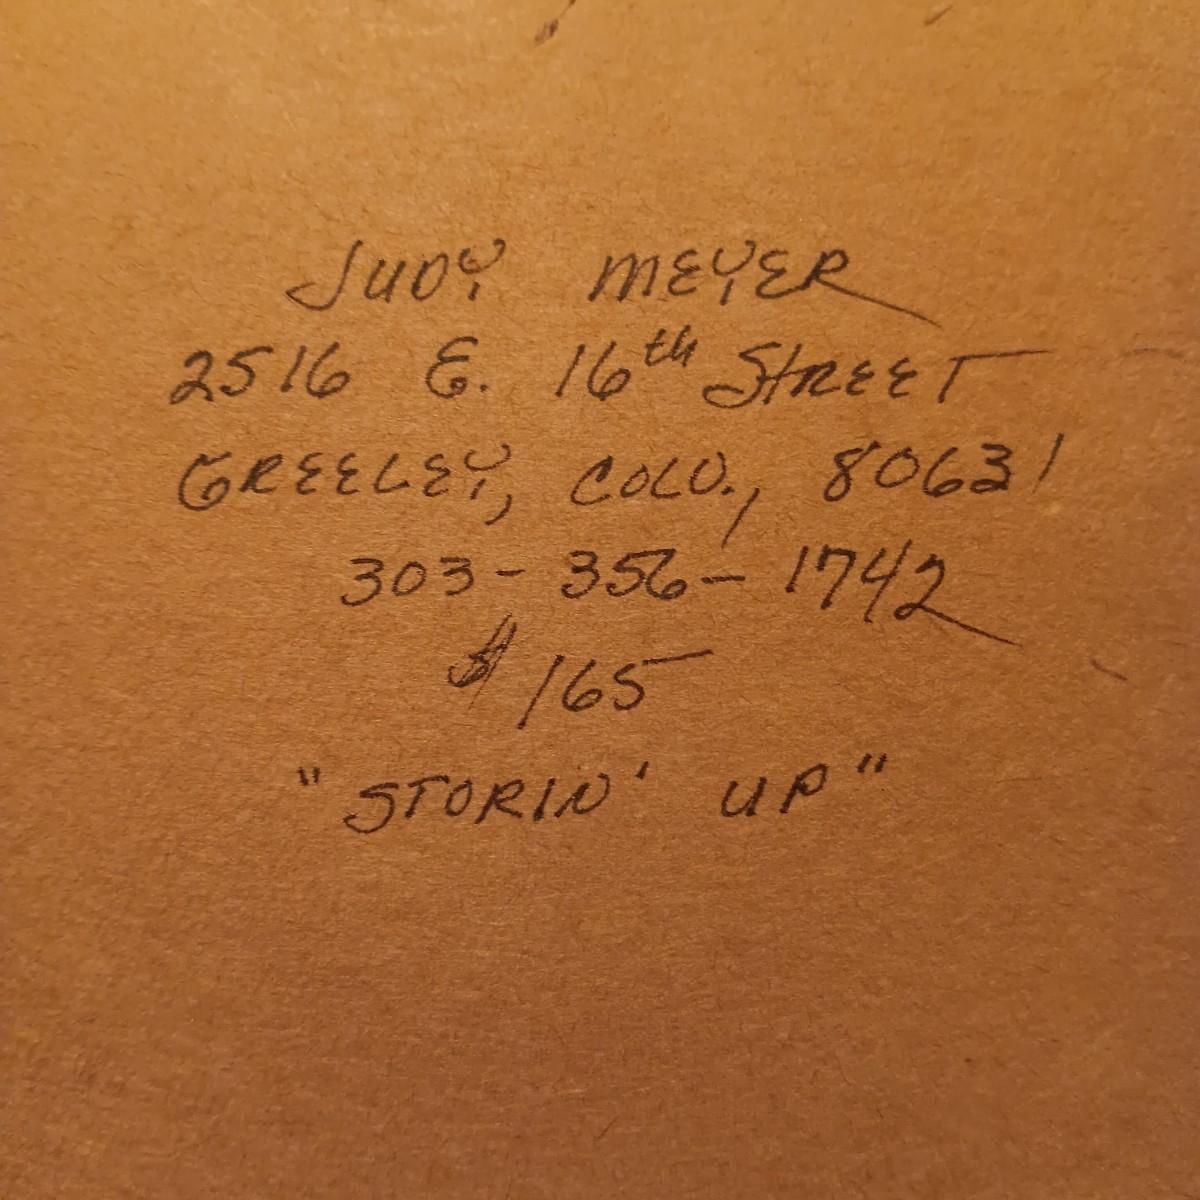 JUDY MEYER
2516 E. 16th STREET
GREELEY, COLO., 80631
303-356-1742
$165
"STORIN' UP"